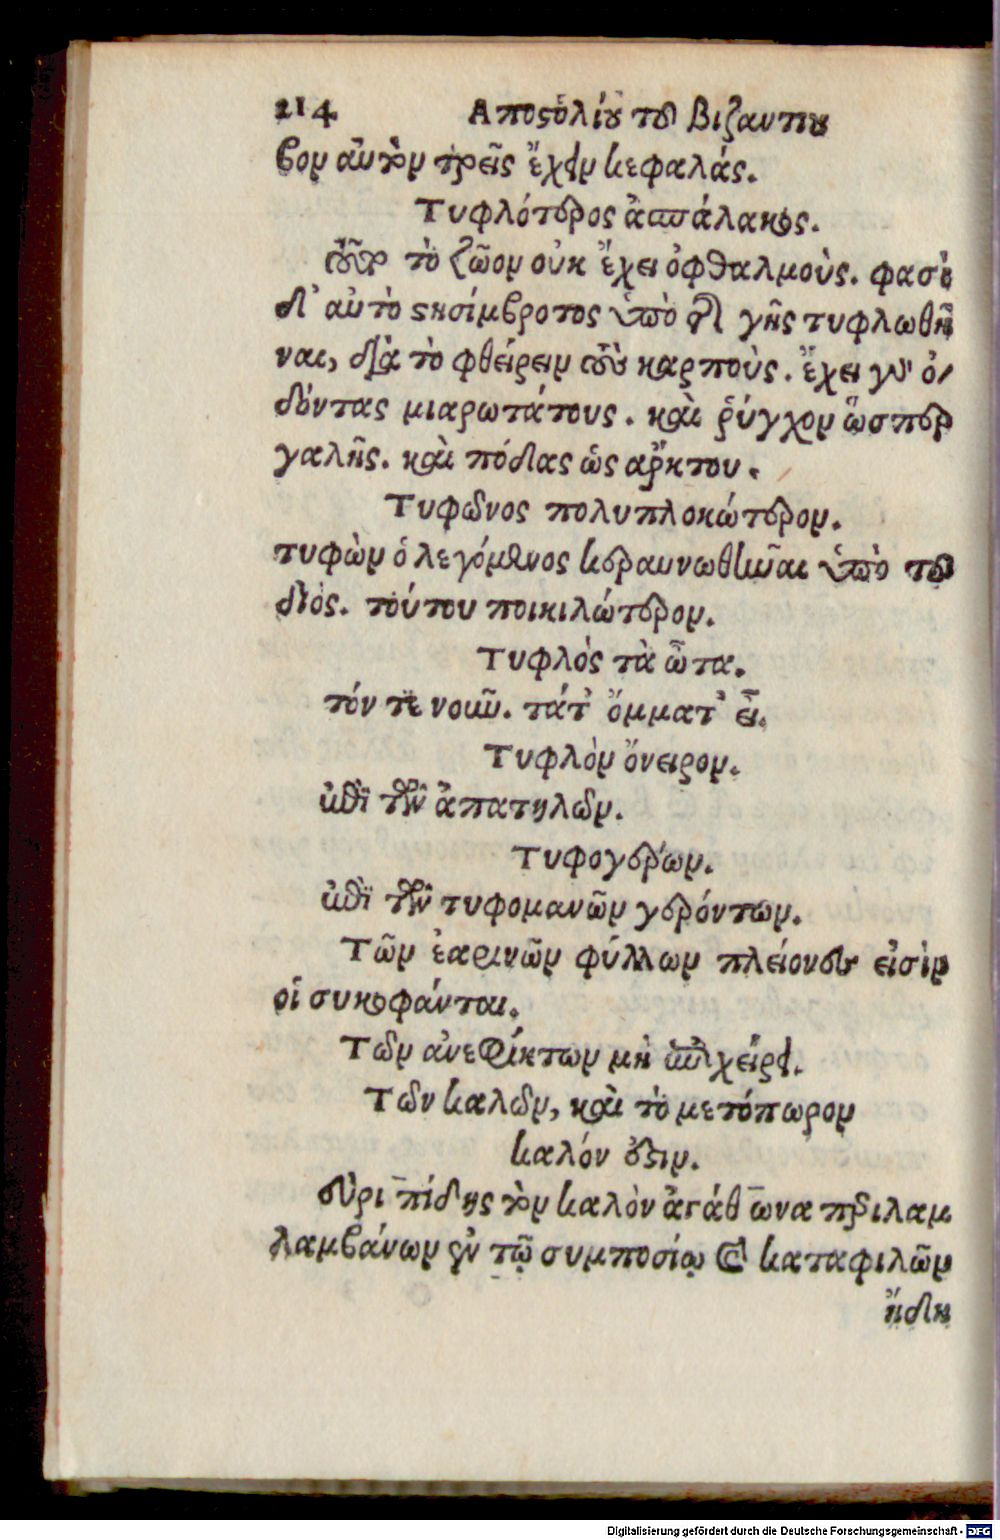 214 Αποστολίου τοῦ βιζαντιου
βον αὐτὸν τρεῖς ἔχειν κεφαλάς.
Τυφλότερος ἀσπάλακος.
τοῦτο τὸ ζῶον οὐκ ἔχει ὀφθαλμοὺς. φασὶ
δ' αὐτὸ στησίμβροτος ὑπὸ τῆς γῆς τυφλωθῆ
ναι, διὰ τὸ φθείρειν τοὺς καρποὺς. ἔχει γὰρ ὀ-
δόντας μιαρωτάτους. καὶ ῥύγχον ὥσπερ
γαλῆς. καὶ πόδας ὡς ἄρκτου.
Τυφῶνος πολυπλοκώτερον.
τυφὼν ὁ λεγόμενος κεραυνωθῆναι ὑπὸ τοῦ
διός. τούτου ποικιλώτερον.
Τυφλὸς τὰ ὦτα.
τόν τε νοῦν. τά τ' ὄμματ' εἶ.
Τυφλὸν ὄνειρον.
ἐπὶ τῶν ἀπατηλῶν.
Τυφογέρων.
ἐπὶ τῶν τυφομανῶν γερόντων.
Τῶν ἐαρινῶν φύλλων πλείονες εἰσὶν
οἱ συκοφάνται.
Τῶν ἀνεφίκτων μὴ ἐπιχείρει.
Τῶν καλῶν, καὶ τὸ μετόπωρον
καλόν ἐστιν.
εὐριπίδης τὸν καλὸν ἀγάθωνα περιλαμ
λαμβάνων ἐν τῷ συμποσίῳ καὶ καταφιλῶν
ἤδη
Digitalisierung gefördert durch die Deutsche Forschungsgemeinschaft - DFG